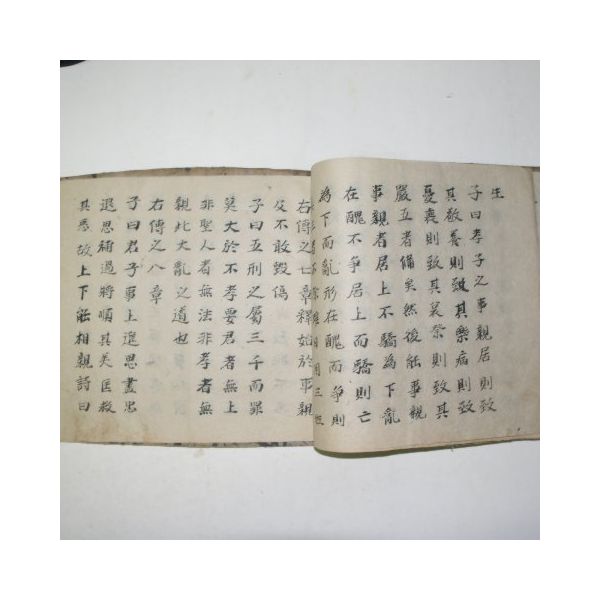 生
子曰孝子之事親居則致
其敬養則致其樂病則致
憂喪則致其哀祭則致其
嚴五者備矣然後能事親
事親者居上不驕為下亂
在醜不爭居上而驕則亡
為下而亂形在醜而爭則
日用三牲
右傳之七章釋始於事親
及不敢毀傷
子曰五刑之屬三千而罪
莫大於不孝要君者無上
非聖人者無法非孝者無
親此大亂之道也
右傳之八章
子曰君子事上進思盡忠
退思補過將順其美匡救
其惡故上下能相親詩曰